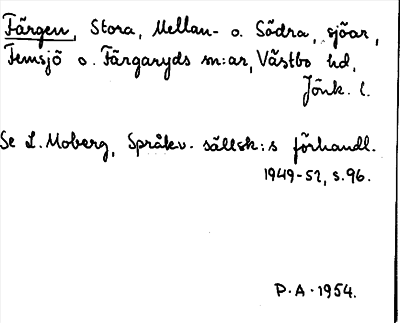 Färgen, Stora, Mellan- o. Södra, sjöar,
Femsjö o. Färgaryds sn:ar, Västbo hd,
Jönk. l.
Se L. Moberg, Språkv. sällsk:s förhandl.
1949-52, s. 96.
P.A. 1954.